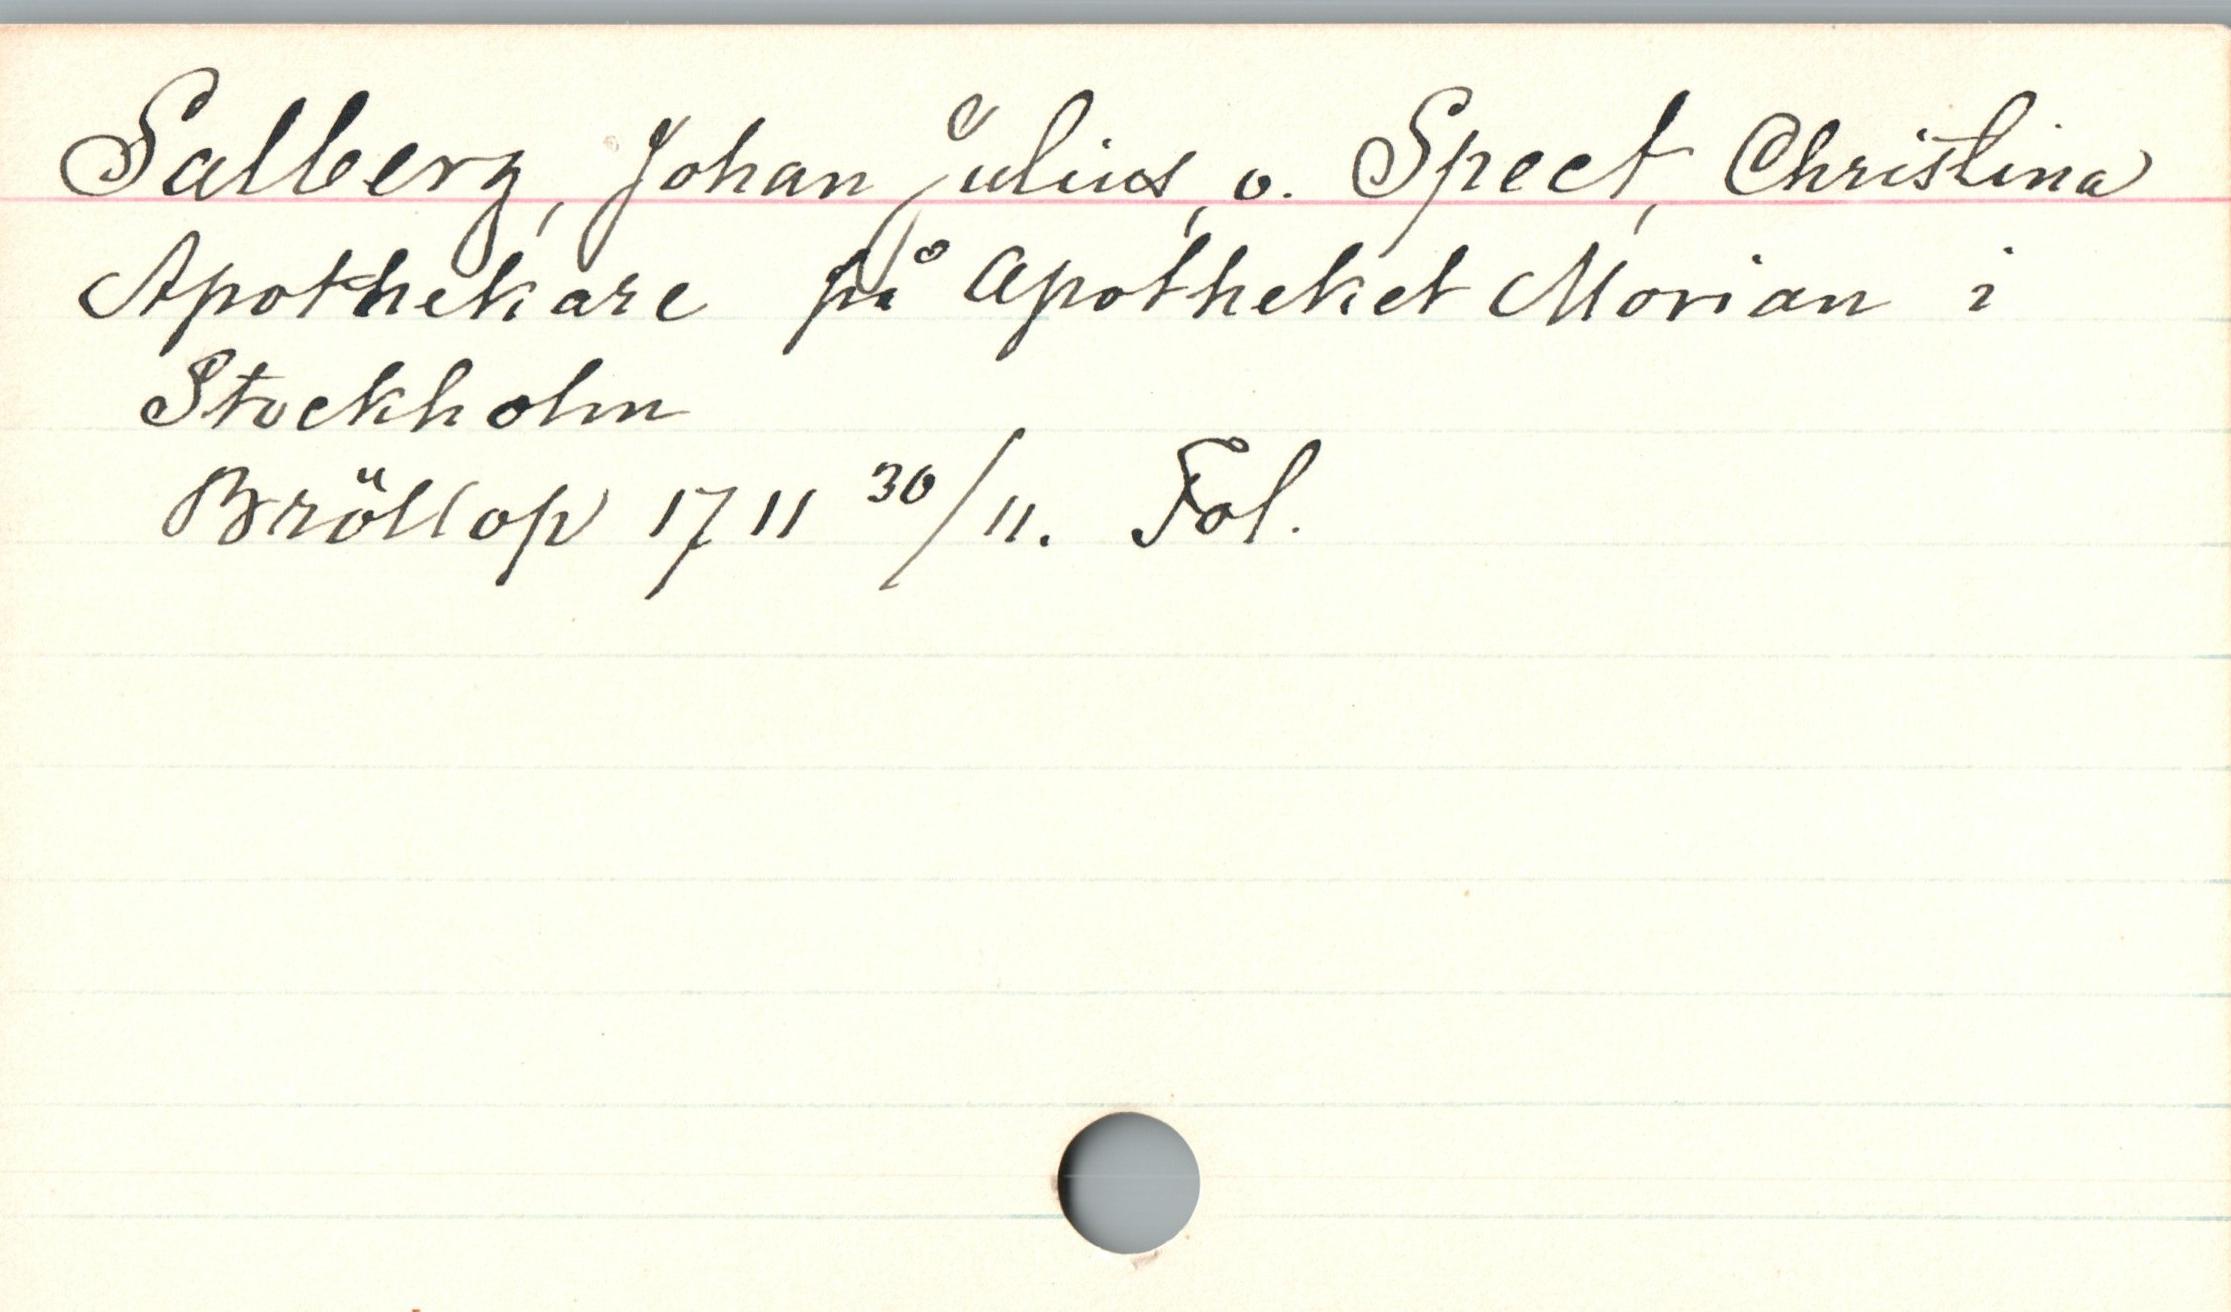 Salberg, Johan Julius, o. Spect, Christina
Apothekare på Apotheket Morian i
Stockholm
Bröllop 1711 30/11. Fol.